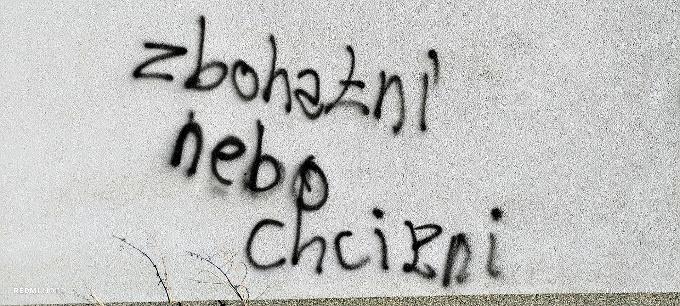 zbohatni
nebo
chcipni
REDMI